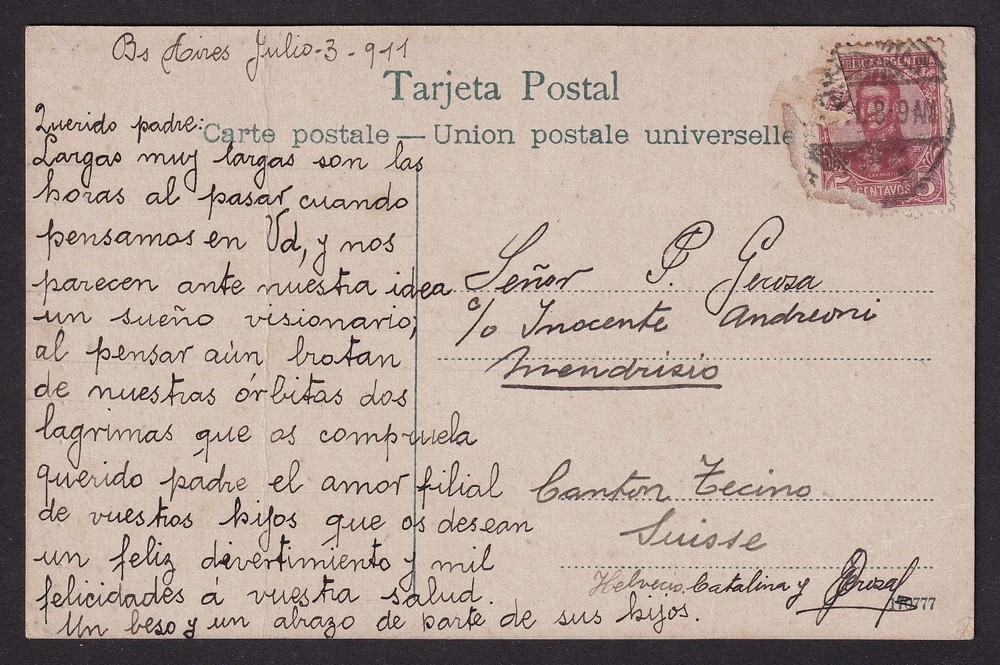 Bs Aires Julio-3-911
Tarjeta Postal
Carte postale — Union postale universelle
REPUBLICA ARGENTINA
8-9 AM
5 CENTAVOS 5
Querido padre:
Largas muy largas son las
horas al pasar cuando
pensamos en Vd, y nos
parecen ante nuestra idea
un sueño visionario,
al pensar aún brotan
de nuestras órbitas dos
lagrimas que os compruela
querido pádre el amor filial
de vuestros hijos que os desean
un feliz divertimiento y mil
felicidades á vuestra salud.
Un beso y un abrazo de parte de sus hijos.
Helvecio, Catalina y
Señor P. Gerosa
c/o Inocente Andreoni
Mendrisio
Canton Tecino
Suisse
170777